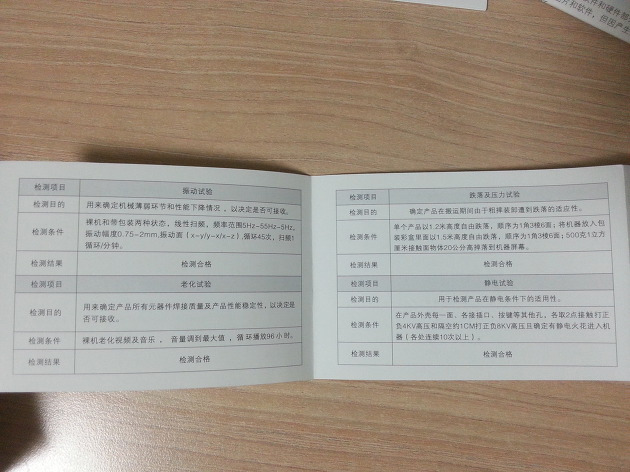 软件和硬件部
图片和软件，但因产生
检测项目 振动试验
检测目的 用来确定机械薄弱环节和性能下降情况，以决定是否可接收。
检测条件 裸机和带包装两种状态，线性扫频，频率范围5Hz~55Hz~5Hz，
振动幅度0.75~2mm,振动面（x-y/y-x/x-z）,循环45次，扫频1
循环/分钟。
检测结果 检测合格
检测项目 老化试验
检测目的 用来确定产品所有元器件焊接质量及产品性能稳定性，以决定是
否可接收。
检测条件 裸机老化视频及音乐，音量调到最大值，循环播放96小时。
检测结果 检测合格
检测项目 跌落及压力试验
检测目的 确定产品在搬运期间由于粗摔装卸遭到跌落的适应性。
检测条件 单个产品以1.2米高度自由跌落，顺序为1角3棱6面；将机器放入包
装彩盒里面以1.5米高度自由跌落，顺序为1角3棱6面；500克1立方
厘米接触面物体20公分高掉落到机器屏幕。
检测结果 检测合格
检测项目 静电试验
检测目的 用于检测产品在静电条件下的适用性。
检测条件 在产品外壳每一面、各接插口、按键等其他孔，各取2点接触打正
负4KV高压和隔空约1CM打正负8KV高压且确定有静电火花进入机
器（各处连续10次以上）。
检测结果 检测合格